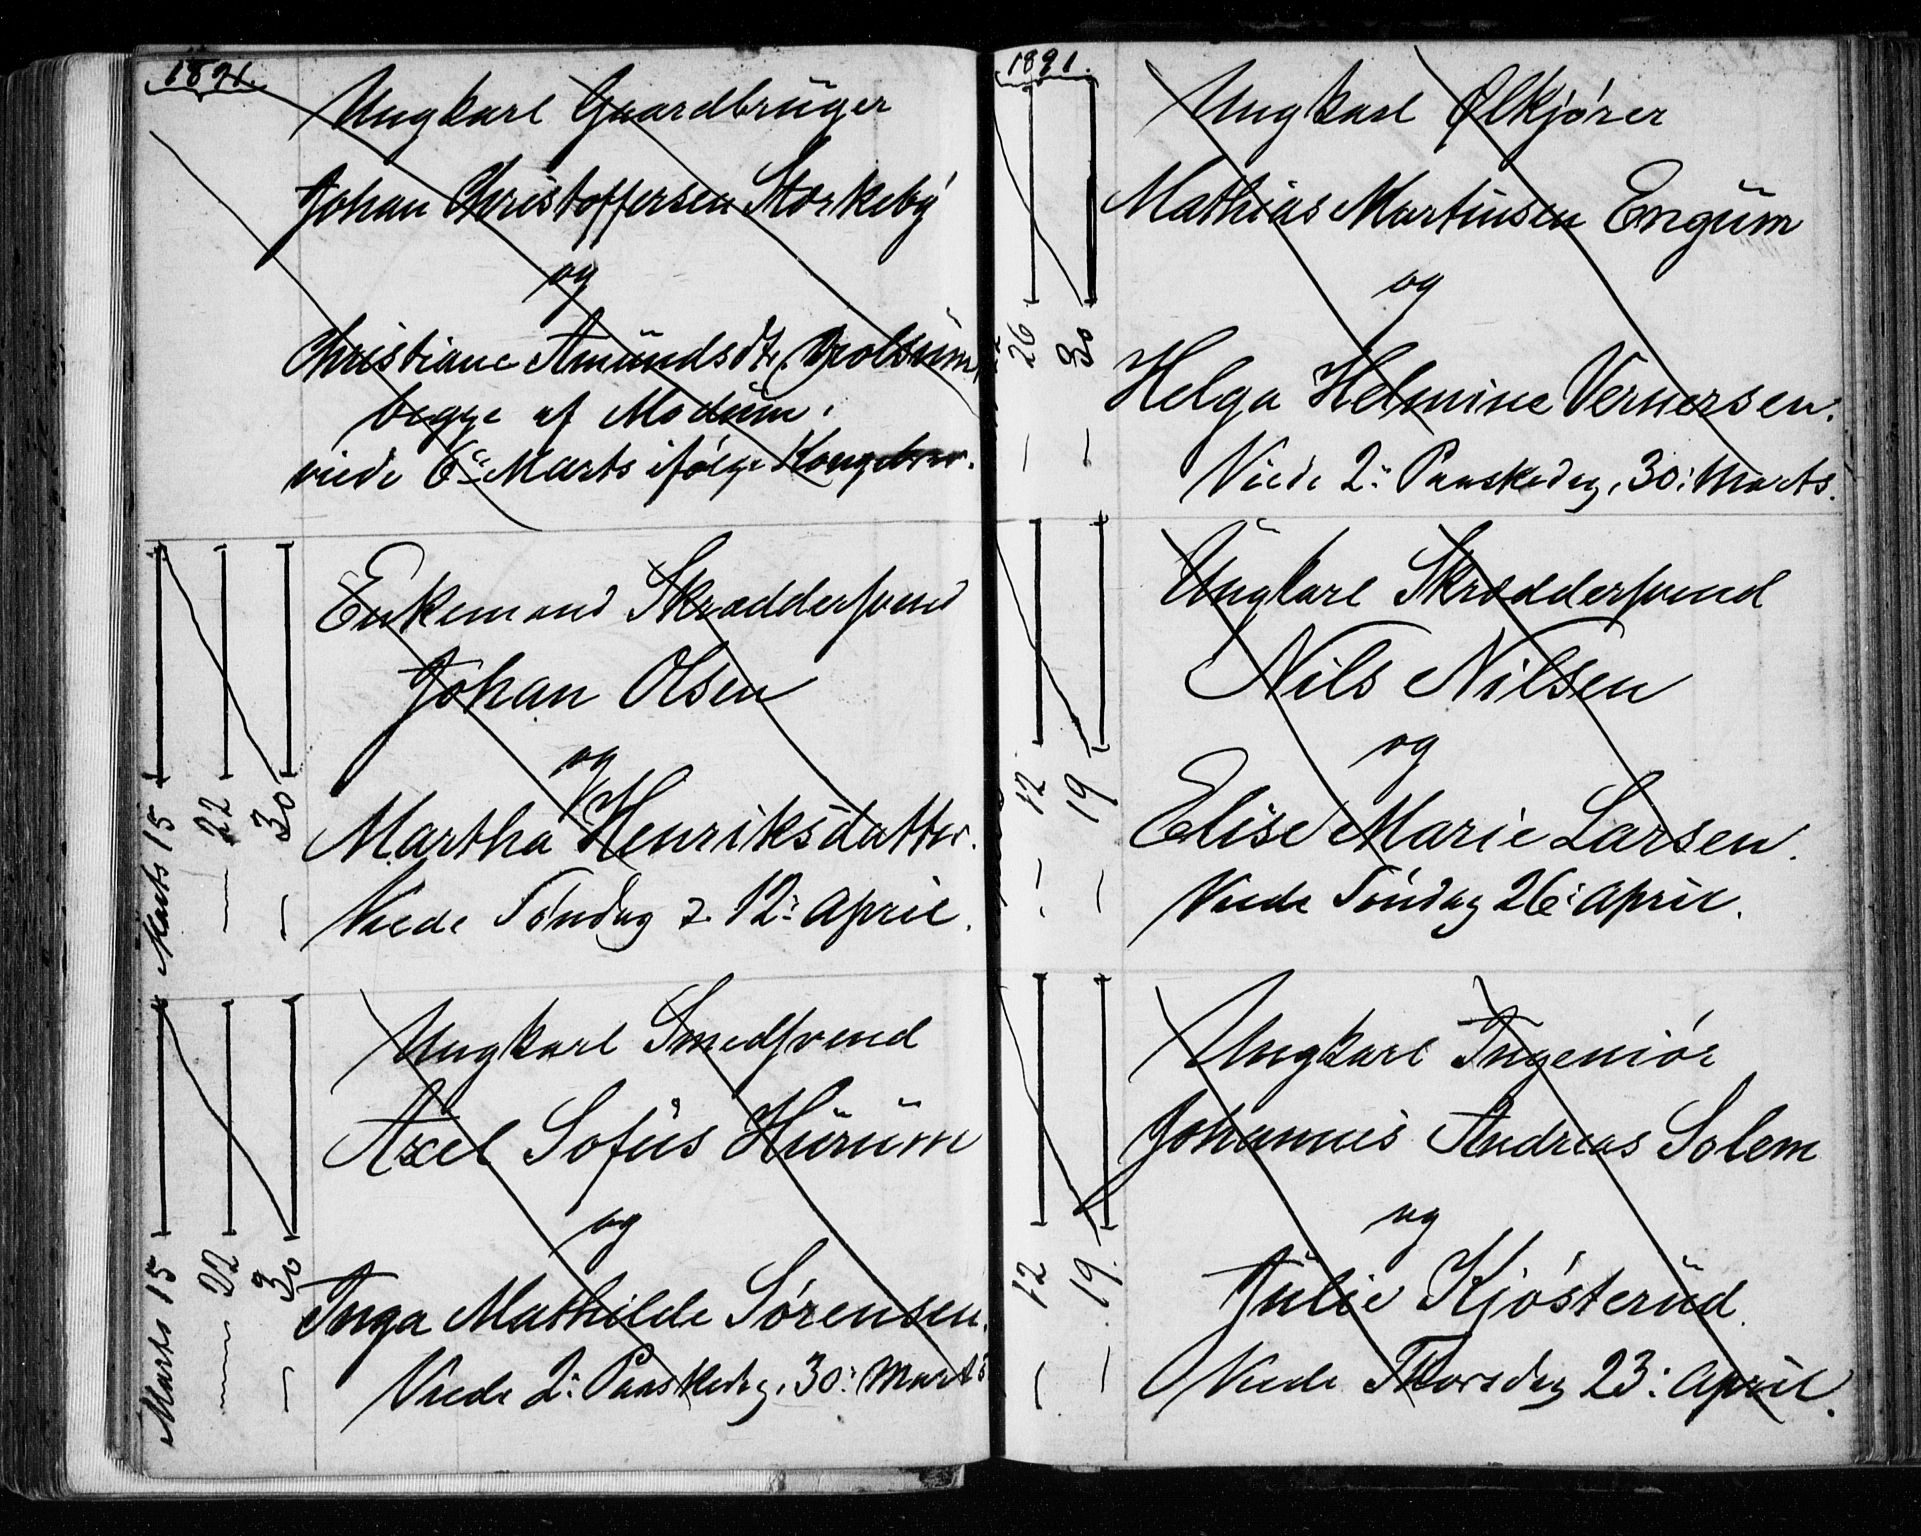 1891.
Ungkarl Gaardbrüger
Johan Christoffersen Storkebÿ
og
Christiane Amündsdtr. Drolsüm,
begge af Modüm.
viede 6te Marts ifølge Kongebrev.
Marts 15 — 22 — 30
Enkemand Skrædderſvend
Johan Olsen
og
Martha Henriksdatter.
Viede Søndag d. 12: April.
Marts 15 — 22 — 30
Ungkarl Smedſvend
Axel Sofüs Hürüm
og
Inga Mathilde Sørensen.
Viede 2: Paaskedag, 30: Marts
1891.
26 — 30 —
Ungkarl Ølkjører
Mathias Martinsen Engüm
og
Helga Helmine Vernersen.
Viede 2: Paaskedag, 30: Marts.
12 — 19 —
Üngkarl Skrædderſvend
Nils Nilsen
og
Elise Marie Larsen.
Viede Søndag 26: April.
12 — 19. —
Ungkarl Ingeniør
Johannes Andreas Solem
og
Jülie Kjøsterüd.
Viede Thorsdag 23: April.